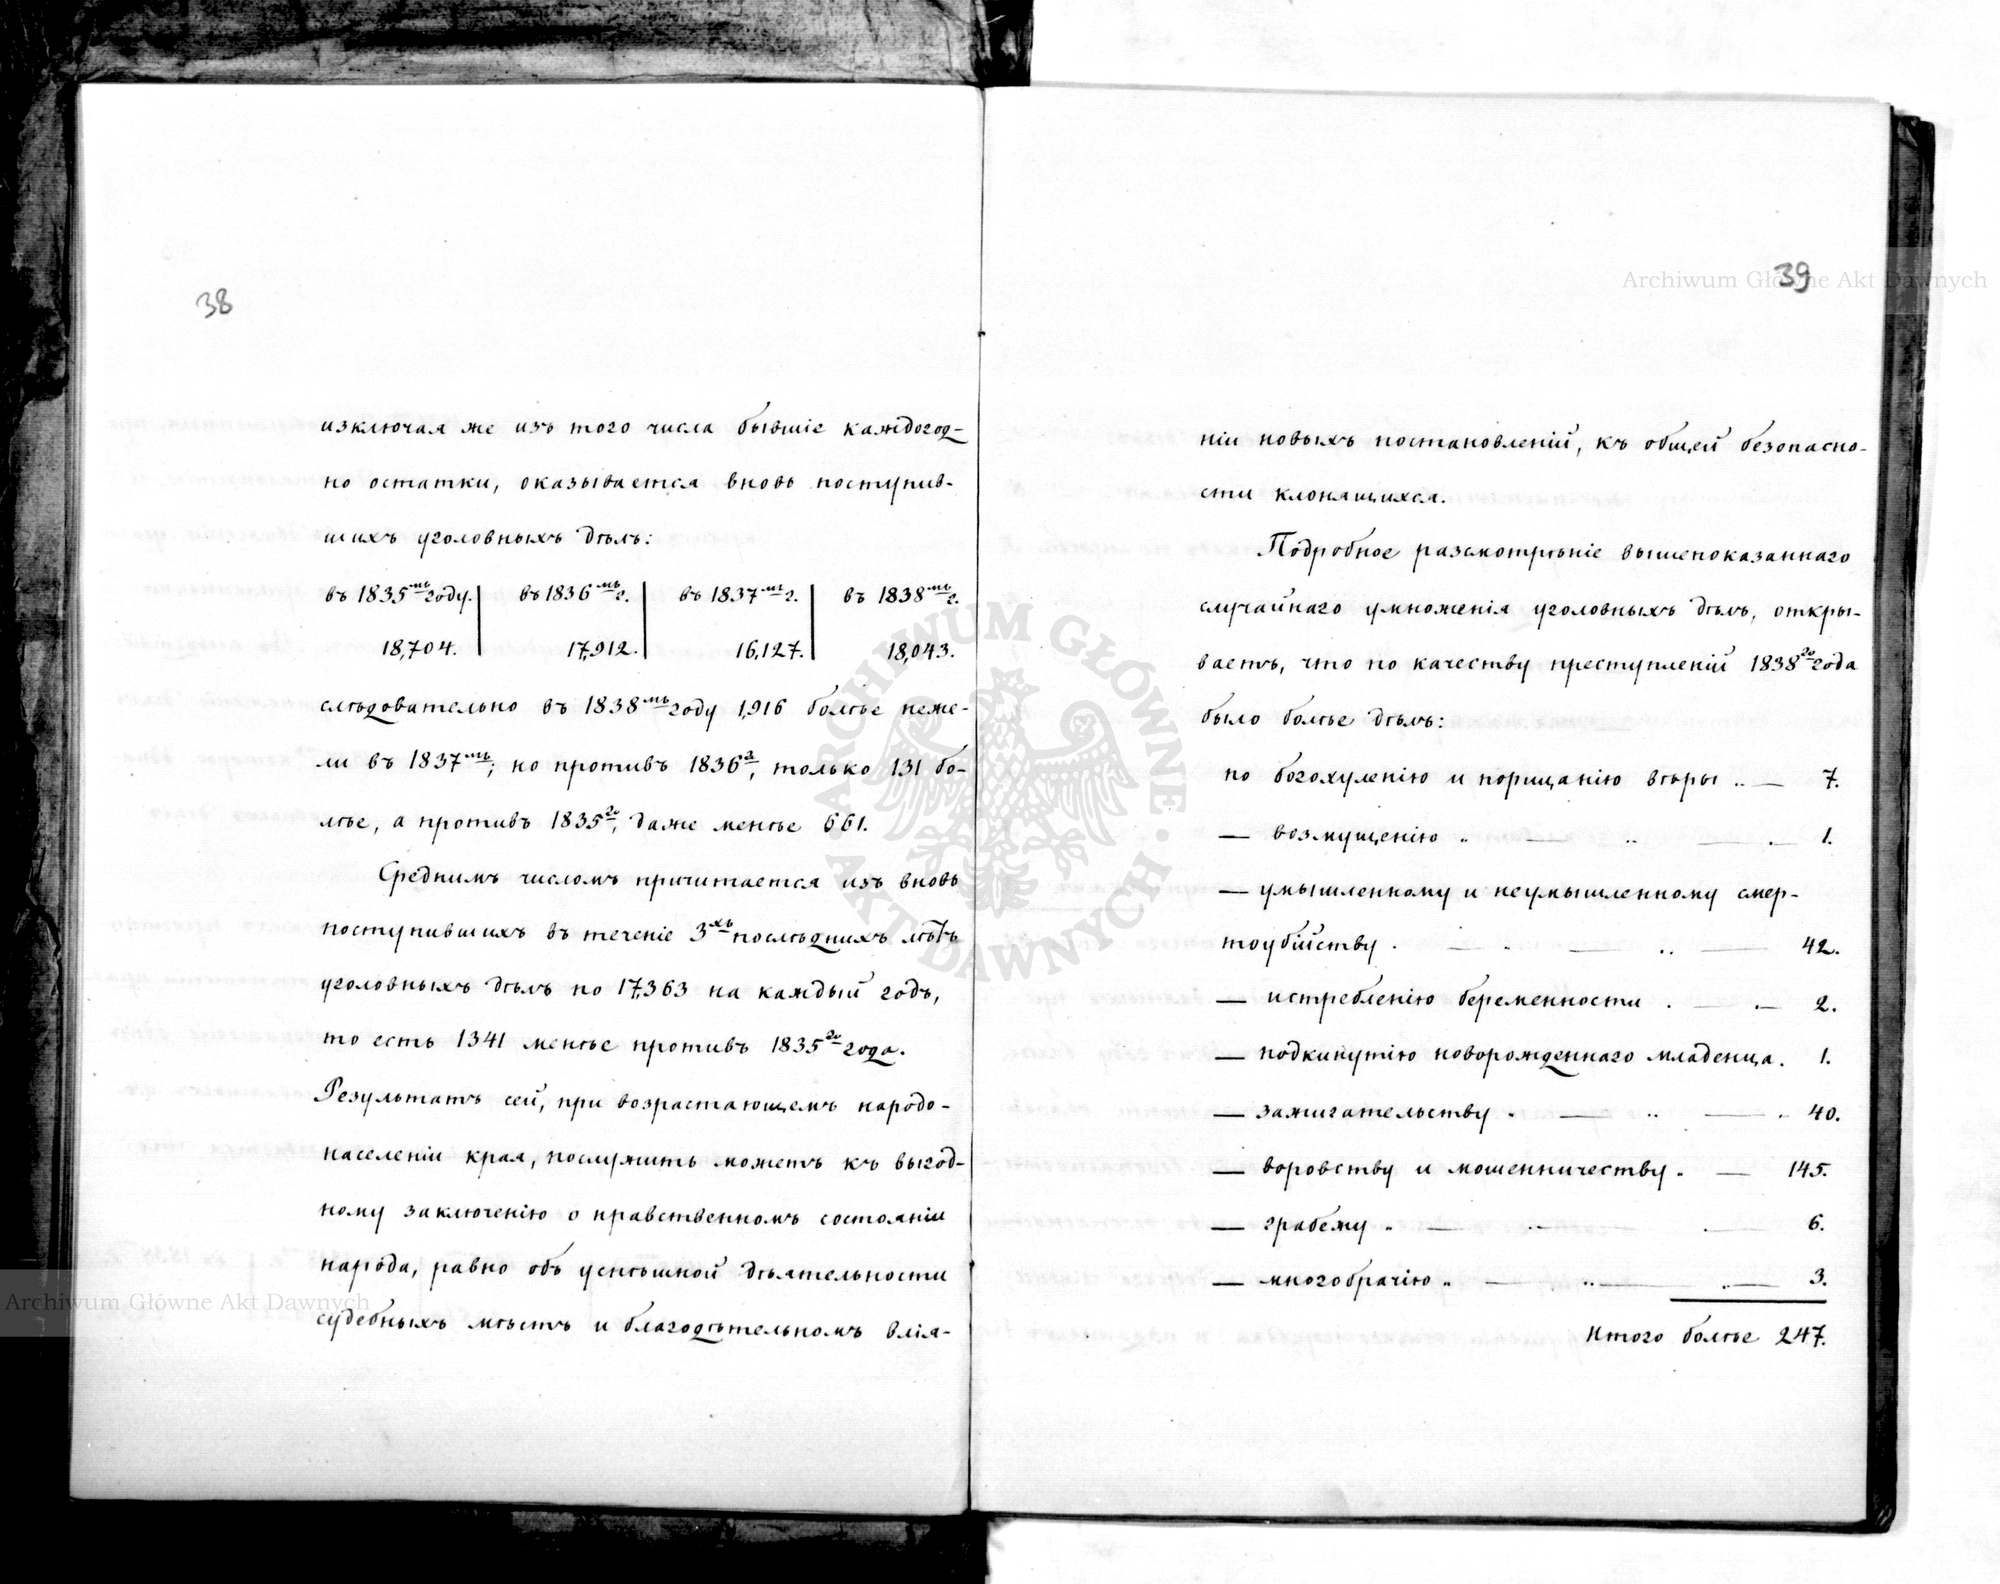 38
изключая же изъ того числа бывшіе каждогод-
но остатки, оказывается вновь поступив-
шихъ уголовныхъ дѣлъ:
въ 1835мъ году. въ 1836мъ г. въ 1837мъ г. въ 1838мъ г.
18,704. 17,912. 16,127. 18,043.
слѣдовательно въ 1838мъ году 1,916 болѣе неже-
ли въ 1837мъ; но противъ 1836г, только 131 бо-
лѣе, а противъ 1835го, даже менѣе 661.
Среднимъ числомъ причитается изъ вновь
поступившихъ въ теченіе 3хъ послѣднихъ лѣтъ
уголовныхъ дѣлъ по 17,363 на каждый годъ,
то есть 1341 менѣе противъ 1835го года.
Результатъ сей, при возрастающемъ народо-
населеніи края, послужить можетъ къ выгод-
ному заключенію о нравственномъ состояніи
народа, равно объ успѣшной дѣятельности
судебныхъ мѣстъ и благодѣтельномъ влія-
39
ніи новыхъ постановленій, къ общей безопасно-
сти клонящихся.
Подробное разсмотрѣніе вышепоказаннаго
случайнаго умноженія уголовныхъ дѣлъ, откры-
ваетъ, что по качеству преступленій 1838го года
было болѣе дѣлъ:
по богохуленію и порицанію вѣры .. — 7.
— возмущенію .. — .. — . — 1.
— умышленному и неумышленному смер-
тоубійству . — . — .. — 42.
— истребленію беременности . — . — 2.
— подкинутію новорожденнаго младенца . 1.
— зажигательству . — .. — . 40.
— воровству и мошенничеству . — 145.
— грабежу . — .. — . — 6.
— многобрачію .. — .. — .. — 3.
Итого болѣе 247.
Archiwum Główne Akt Dawnych
Archiwum Główne Akt Dawnych
ARCHIWUM GŁÓWNE · AKT DAWNYCH ·